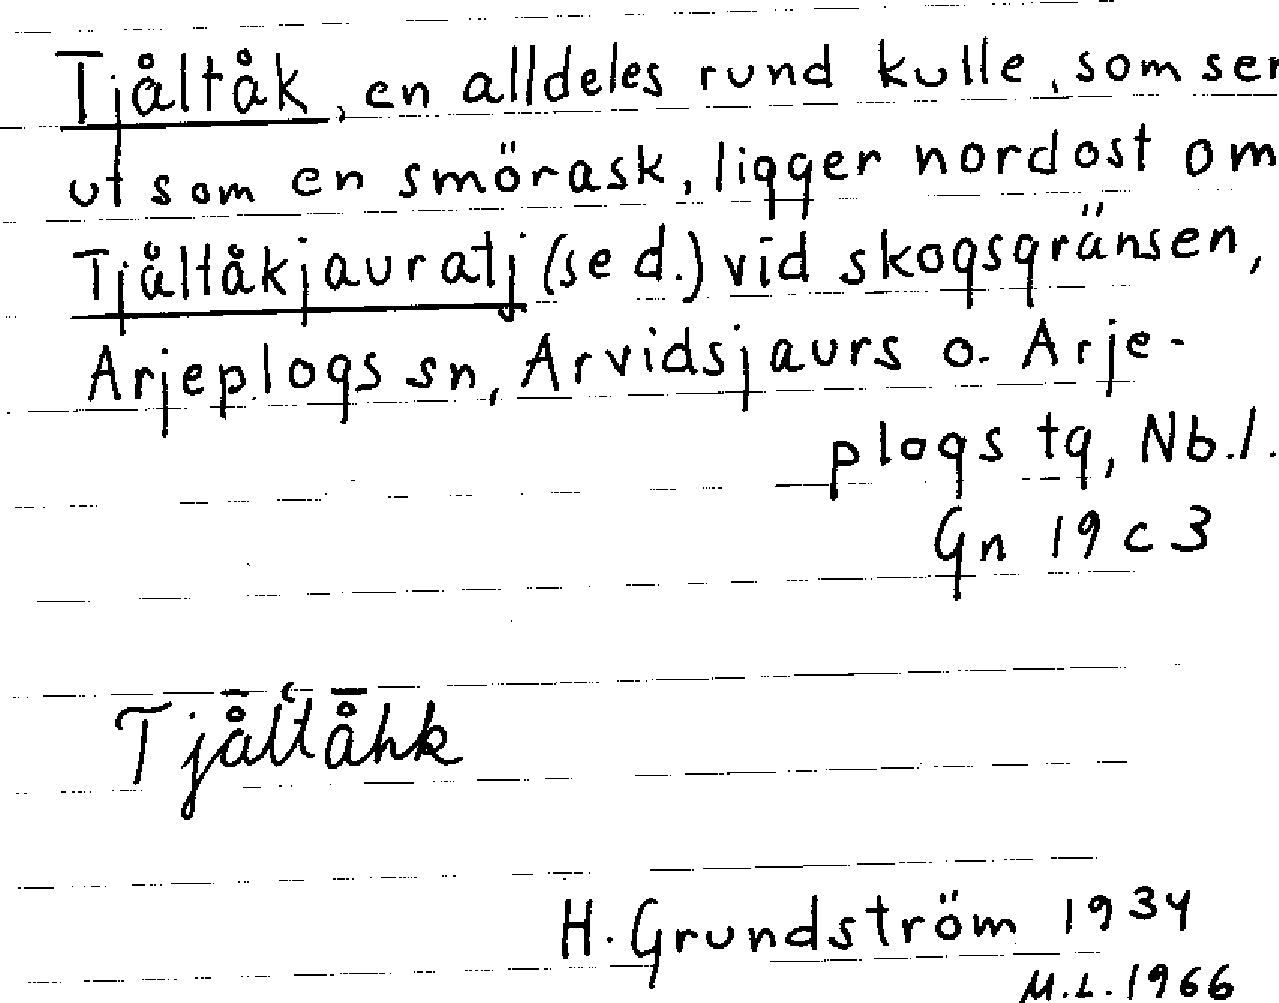 Tjåltåk, en alldeles rund kulle, som ser
ut som en smörask, ligger nordost om
Tjåltåkjauratj (se d.) vid skogsgränsen,
Arjeplogs sn, Arvidsjaurs o. Arje-
plogs tg, Nb.l.
Gn 19 c 3
Tjå̄ltʿå̄hk
H. Grundström 1934
M.L. 1966